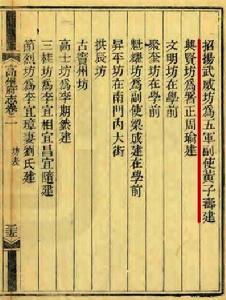 招揚武威坊為五軍副使黃子壽建
興賢坊為警正周瑜建
文明坊在學前
聚奎坊在學前
魁躍坊為副使梁成建在學前
昇平坊在南門內大街
拱辰坊
古竇州坊
高士坊為李期粲建
三雄坊為李宜相宜昌宜隨建
節烈坊為李宜璋妻劉氏建
高州府志卷一
坊表